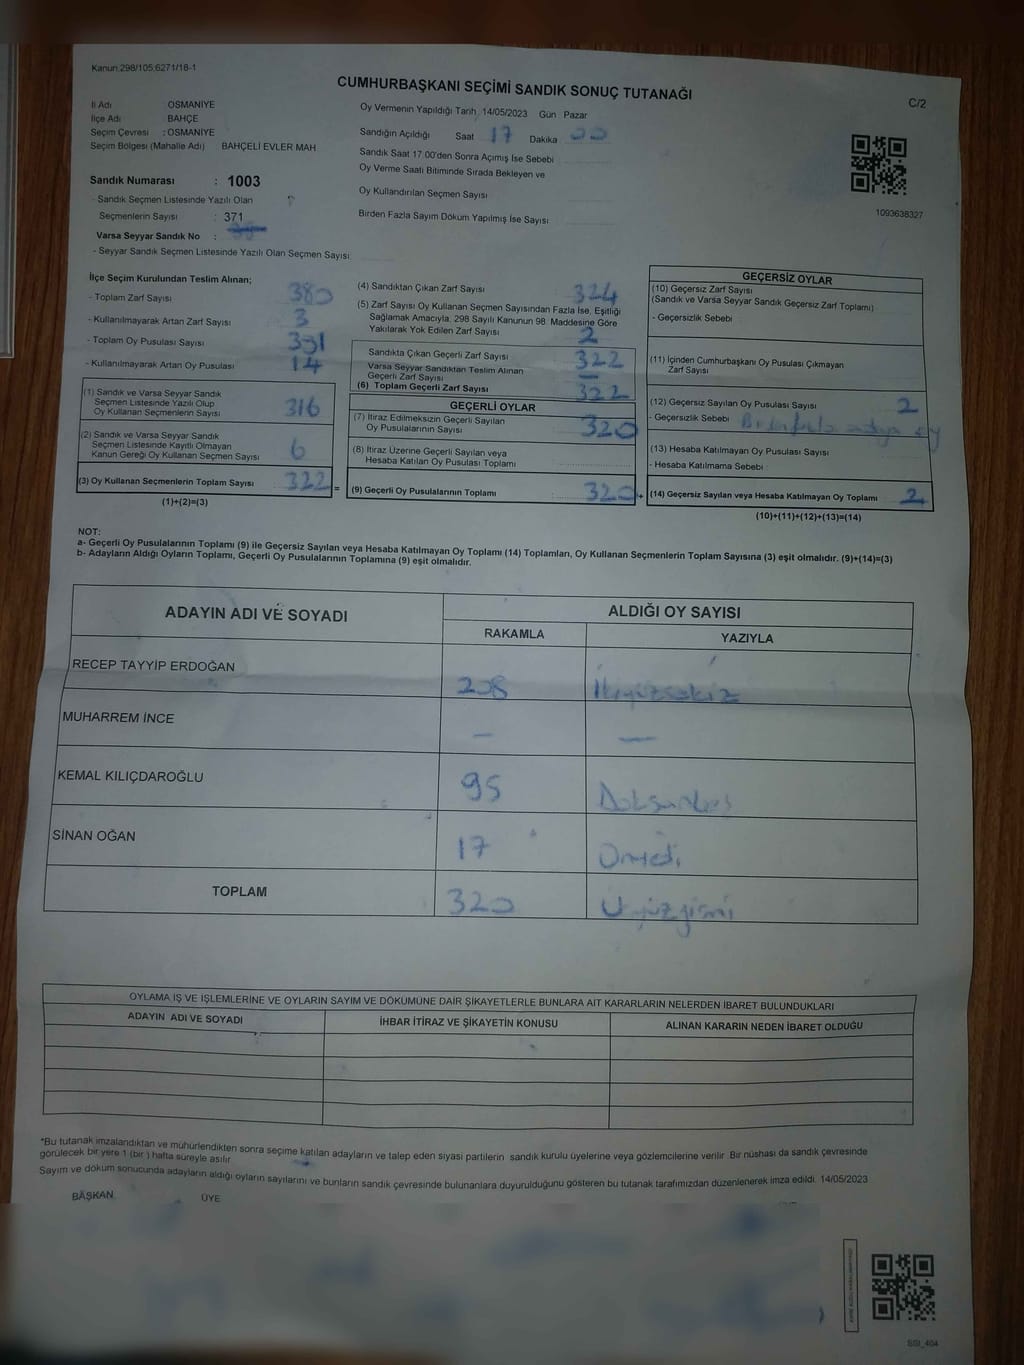 Kanun 298/105 6271/18-1
CUMHURBAŞKANI SEÇİMİ SANDIK SONUÇ TUTANAĞI
C/2
İl Adı OSMANİYE
İlçe Adı BAHÇE
Seçim Çevresi : OSMANİYE
Seçim Bölgesi (Mahalle Adı) BAHÇELİ EVLER MAH
Sandık Numarası : 1003
- Sandık Seçmen Listesinde Yazılı Olan
Seçmenlerin Sayısı : 371
Varsa Seyyar Sandık No :
- Seyyar Sandık Seçmen Listesinde Yazılı Olan Seçmen Sayısı
Oy Vermenin Yapıldığı Tarih 14/05/2023 Gün Pazar
Sandığın Açıldığı Saat 17 Dakika 00
Sandık Saat 17:00'den Sonra Açımış İse Sebebi
Oy Verme Saati Bitiminde Sırada Bekleyen ve
Oy Kullandırılan Seçmen Sayısı
Birden Fazla Sayım Döküm Yapılmış İse Sayısı
1093638327
İlçe Seçim Kurulundan Teslim Alınan;
- Toplam Zarf Sayısı 380
- Kullanılmayarak Artan Zarf Sayısı 3
- Toplam Oy Pusulası Sayısı
- Kullanılmayarak Artan Oy Pusulası 14
(1) Sandık ve Varsa Seyyar Sandık
Seçmen Listesinde Yazılı Olup
Oy Kullanan Seçmenlerin Sayısı 316
(2) Sandık ve Varsa Seyyar Sandık
Seçmen Listesinde Kayıtlı Olmayan
Kanun Gereği Oy Kullanan Seçmen Sayısı 6
(3) Oy Kullanan Seçmenlerin Toplam Sayısı 322 =
(1)+(2)=(3)
(4) Sandıktan Çıkan Zarf Sayısı 324
(5) Zarf Sayısı Oy Kullanan Seçmen Sayısından Fazla İse, Eşitliği
Sağlamak Amacıyla, 298 Sayılı Kanunun 98. Maddesine Göre
Yakılarak Yok Edilen Zarf Sayısı 2
Sandıkta Çıkan Geçerli Zarf Sayısı 322
Varsa Seyyar Sandıktan Teslim Alınan
Geçerli Zarf Sayısı —
(6) Toplam Geçerli Zarf Sayısı 322
GEÇERLİ OYLAR
(7) İtiraz Edilmeksizin Geçerli Sayılan
Oy Pusulalarının Sayısı 320
(8) İtiraz Üzerine Geçerli Sayılan veya
Hesaba Katılan Oy Pusulası Toplamı
(9) Geçerli Oy Pusulalarının Toplamı : 320 +
GEÇERSİZ OYLAR
(10) Geçersiz Zarf Sayısı
(Sandık ve Varsa Seyyar Sandık Geçersiz Zarf Toplamı)
- Geçersizlik Sebebi
(11) İçinden Cumhurbaşkanı Oy Pusulası Çıkmayan
Zarf Sayısı
(12) Geçersiz Sayılan Oy Pusulası Sayısı 2
- Geçersizlik Sebebi Birden fazla adaya oy
(13) Hesaba Katılmayan Oy Pusulası Sayısı
- Hesaba Katılmama Sebebi
(14) Geçersiz Sayılan veya Hesaba Katılmayan Oy Toplamı 2
(10)+(11)+(12)+(13)=(14)
NOT:
a- Geçerli Oy Pusulalarının Toplamı (9) ile Geçersiz Sayılan veya Hesaba Katılmayan Oy Toplamı (14) Toplamları, Oy Kullanan Seçmenlerin Toplam Sayısına (3) eşit olmalıdır. (9)+(14)=(3)
b- Adayların Aldığı Oyların Toplamı, Geçerli Oy Pusulalarının Toplamına (9) eşit olmalıdır.
ADAYIN ADI VE SOYADI ALDIĞI OY SAYISI
RAKAMLA YAZIYLA
RECEP TAYYİP ERDOĞAN 208 İkiyüzsekiz
MUHARREM İNCE — —
KEMAL KILIÇDAROĞLU 95 Doksanbeş
SİNAN OĞAN 17 Onyedi
TOPLAM 320 Üçyüzyirmi
OYLAMA İŞ VE İŞLEMLERİNE VE OYLARIN SAYIM VE DÖKÜMÜNE DAİR ŞİKAYETLERLE BUNLARA AİT KARARLARIN NELERDEN İBARET BULUNDUKLARI
ADAYIN ADI VE SOYADI İHBAR İTİRAZ VE ŞİKAYETİN KONUSU ALINAN KARARIN NEDEN İBARET OLDUĞU
*Bu tutanak imzalandıktan ve mühürlendikten sonra seçime katılan adayların ve talep eden siyasi partilerin sandık kurulu üyelerine veya gözlemcilerine verilir Bir nüshası da sandık çevresinde
görülecek bir yere 1 (bir ) hafta süreyle asılır
Sayım ve döküm sonucunda adayların aldığı oyların sayılarını ve bunların sandık çevresinde bulunanlara duyurulduğunu gösteren bu tutanak tarafımızdan düzenlenerek imza edildi. 14/05/2023
BAŞKAN ÜYE
SSI_404